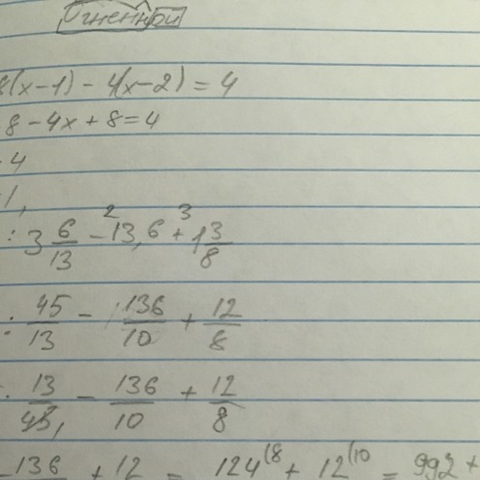 Огненный
8(x-1) - 4(x-2) = 4
8 - 4x + 8 = 4
4
1,
: 3 6/13 -² 13,6 +³ 1 3/8
: 45/13 - 136/10 + 12/8
· 13/45, - 136/10 + 12/8
-136 + 12 = 124⁽⁸ + 12⁽¹⁰ = 992 +